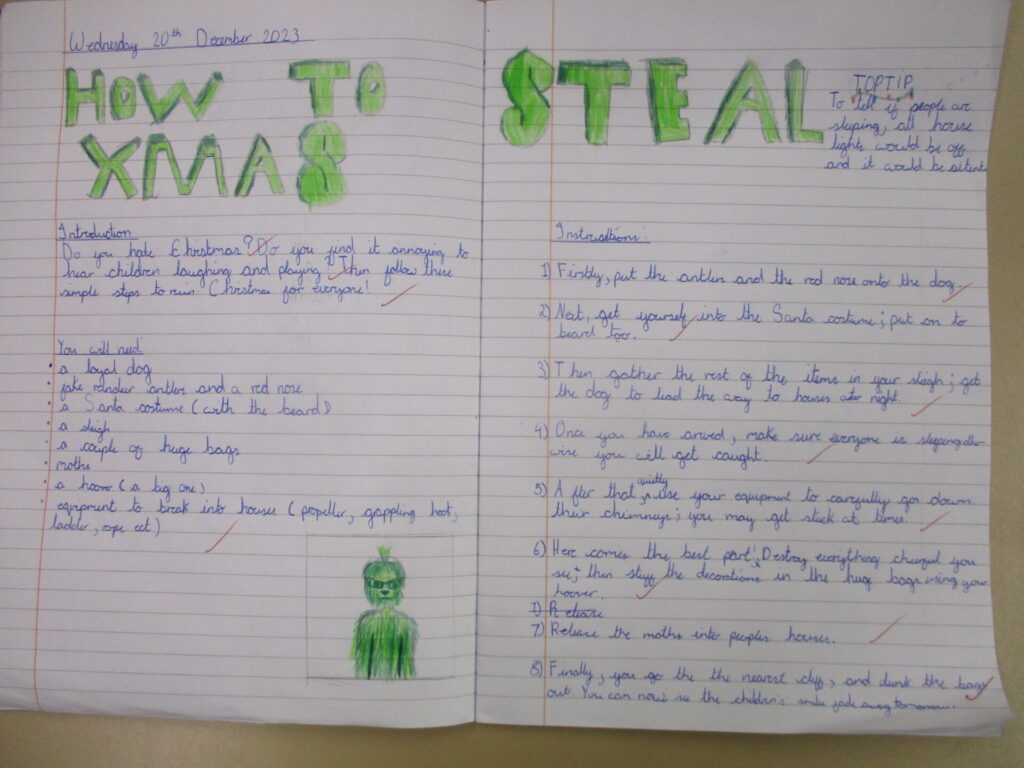 Wednesday 20th December 2023
HOW TO STEAL
XMAS
Introduction
Do you hate Christmas? Do you find it annoying to
hear children laughing and playing. Then follow these
simple steps to ruin Christmas for everyone!
You will need
a loyal dog
fake reinder antlers and a red nose
a Santa costume (with the beard)
a sleigh
a couple of huge bags
moths
a hoover (a big one)
equipment to break into houses (propeller, grappling hook,
ladder, rope ect)
TOPTIP
To tell if people are
sleeping, all house
lights would be off
and it would be silent
Instructions:
1) Firstly, put the antlers and the red nose onto the dog.
2) Next, get yourself into the Santa costume; put on to
beard too.
3) Then gather the rest of the items in your sleigh; get
the dog to lead the way to houses at night.
4) Once you have arived, make sure everyone is sleeping other
wise you will get caught.
5) After that, quietly use your equipment to carfully go down
their chimneys; you may get stuck at times.
6) Here comes the best part! Destroy everything cheerful you
see, then stuff the decorations in the huge bags using your
hoover.
7) Release
7) Release the moths into peoples houses.
8) Finally, you go the the nearest cliff, and dunk the bags
out. You can now se the children's smiles fade away tomorrow.